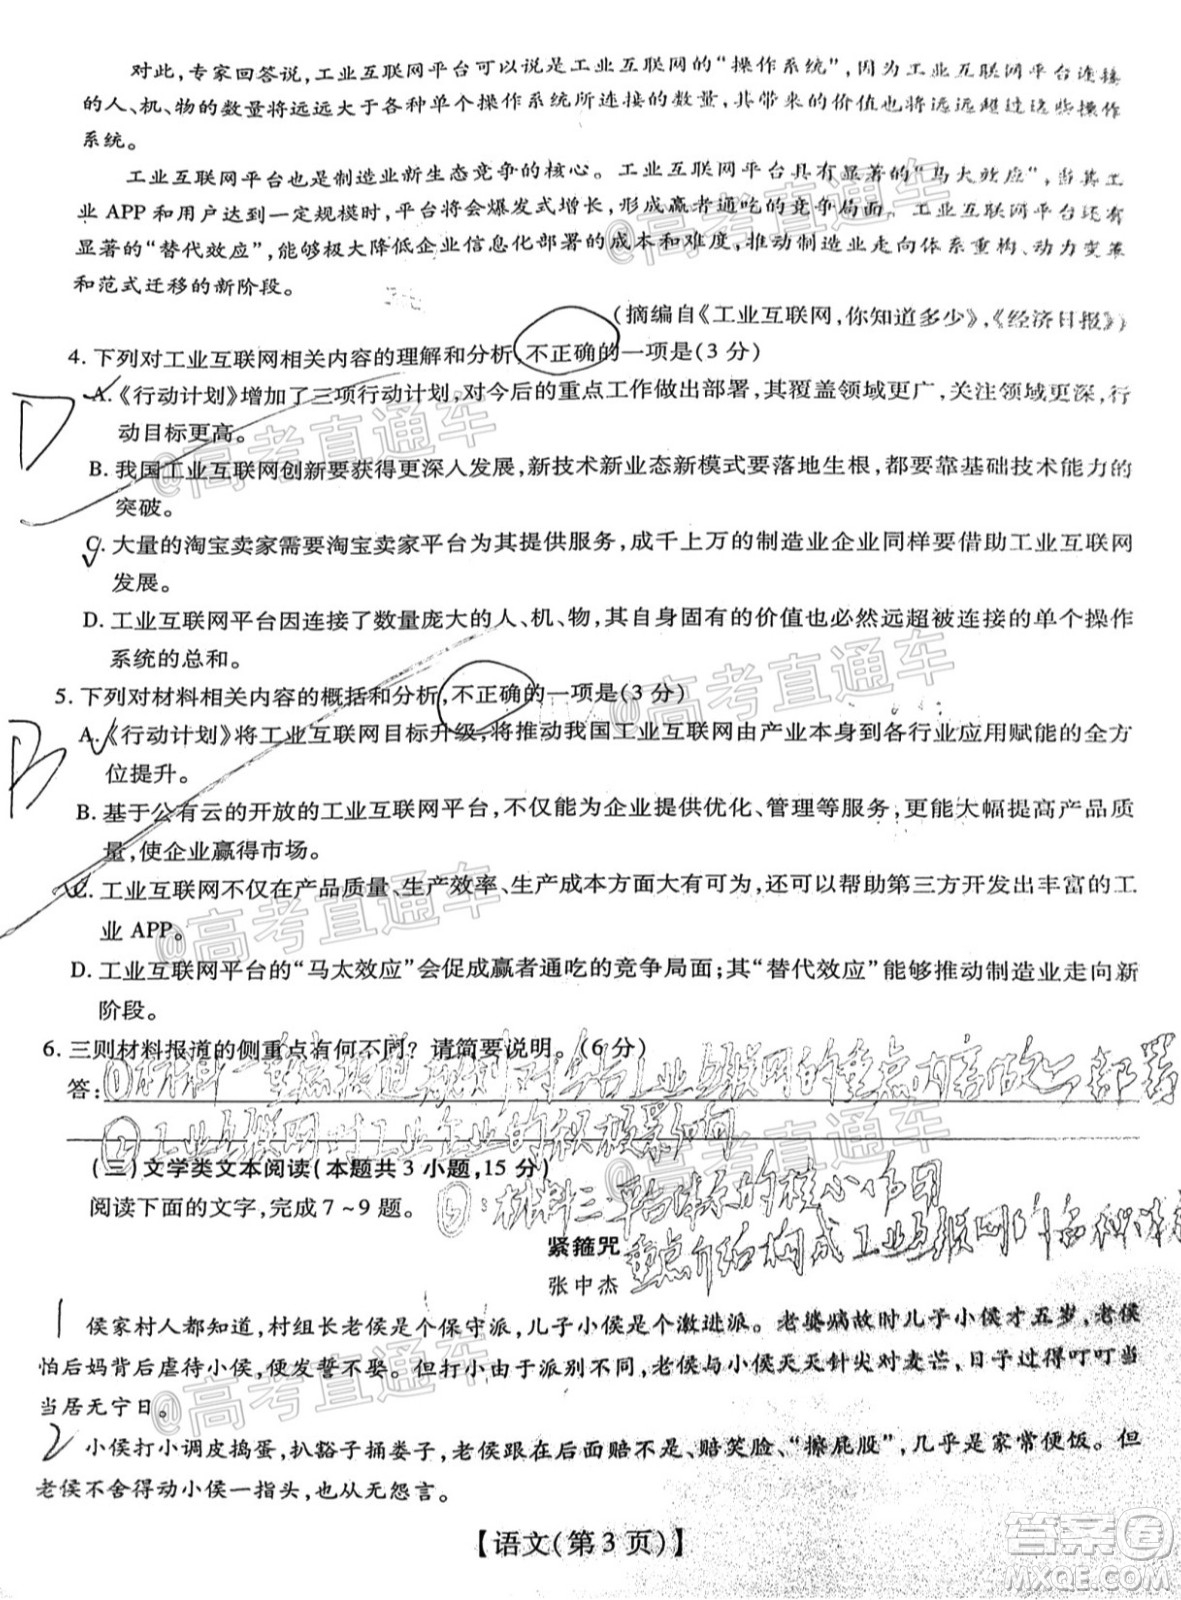 对此,专家回答说,工业互联网平台可以说是工业互联网的“操作系统”,因为工业互联网平台连接
的人、机、物的数量将远远大于各种单个操作系统所连接的数量,其带来的价值也将远远超过这些操作
系统。
工业互联网平台也是制造业新生态竞争的核心。工业互联网平台具有显著的“马太效应”,当其工
业 APP 和用户达到一定规模时,平台将会爆发式增长,形成赢者通吃的竞争局面。工业互联网平台还有
显著的“替代效应”,能够极大降低企业信息化部署的成本和难度,推动制造业走向体系重构、动力变革
和范式迁移的新阶段。
(摘编自《工业互联网,你知道多少》,《经济日报》)
4. 下列对工业互联网相关内容的理解和分析,不正确的一项是(3 分)
D
A.《行动计划》增加了三项行动计划,对今后的重点工作做出部署,其覆盖领域更广,关注领域更深,行
动目标更高。
B. 我国工业互联网创新要获得更深入发展,新技术新业态新模式要落地生根,都要靠基础技术能力的
突破。
C. 大量的淘宝卖家需要淘宝卖家平台为其提供服务,成千上万的制造业企业同样要借助工业互联网
发展。
D. 工业互联网平台因连接了数量庞大的人、机、物,其自身固有的价值也必然远超被连接的单个操作
系统的总和。
5. 下列对材料相关内容的概括和分析,不正确的一项是(3 分)
B
A.《行动计划》将工业互联网目标升级,将推动我国工业互联网由产业本身到各行业应用赋能的全方
位提升。
B. 基于公有云的开放的工业互联网平台,不仅能为企业提供优化、管理等服务,更能大幅提高产品质
量,使企业赢得市场。
C. 工业互联网不仅在产品质量、生产效率、生产成本方面大有可为,还可以帮助第三方开发出丰富的工
业 APP。
D. 工业互联网平台的“马太效应”会促成赢者通吃的竞争局面;其“替代效应”能够推动制造业走向新
阶段。
6. 三则材料报道的侧重点有何不同?请简要说明。(6 分)
答:①材料一重点报道 工业互联网的重点内容做出部署
②工业互联网对工业企业的积极影响如何
(三)文学类文本阅读(本题共 3 小题,15 分)
阅读下面的文字,完成 7~9 题。
③:材料三 平台体系的核心作用
重点介绍构成工业互联网的
紧箍咒
张中杰
1
侯家村人都知道,村组长老侯是个保守派,儿子小侯是个激进派。老婆病故时儿子小侯才五岁,老侯
怕后妈背后虐待小侯,便发誓不娶。但打小由于派别不同,老侯与小侯天天针尖对麦芒,日子过得叮叮当
当居无宁日。
2
小侯打小调皮捣蛋,扒豁子捅娄子,老侯跟在后面赔不是、赔笑脸、“擦屁股”,几乎是家常便饭。但
老侯不舍得动小侯一指头,也从无怨言。
【语文(第 3 页)】
@高考直通车
@高考直通车
@高考直通车
@高考直通车
@高考直通车
@高考直通车
答案卷
MXQE.COM